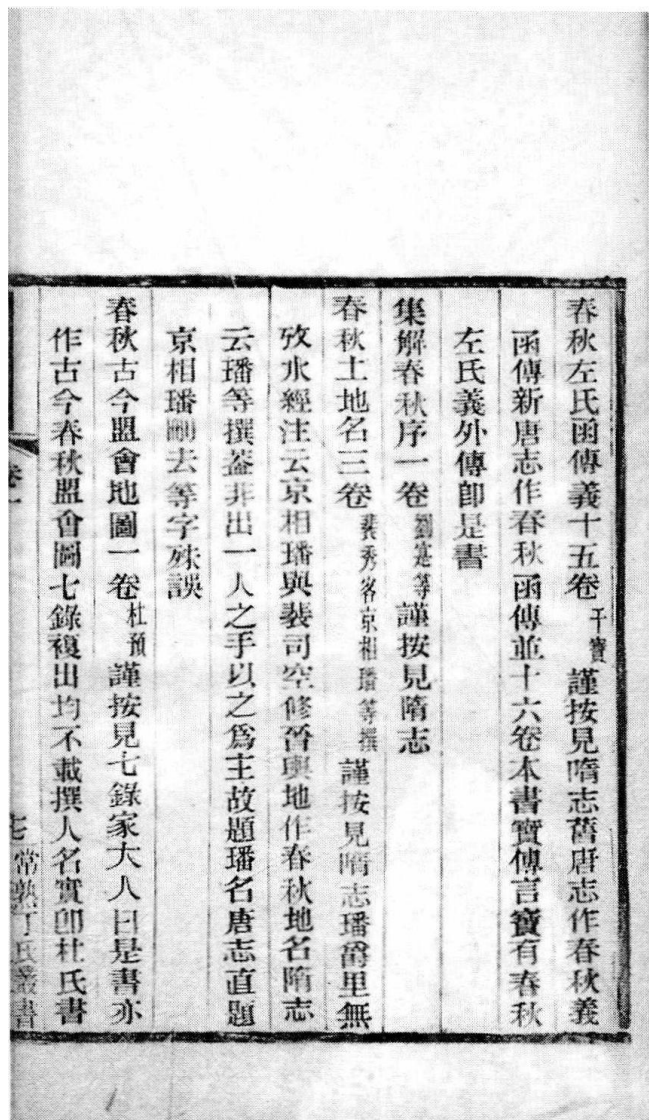 春秋左氏函傳義十五卷干寶謹按見隋志舊唐志作春秋義
函傳新唐志作春秋函傳並十六卷本書寶傳言寶有春秋
左氏義外傳卽是書
集解春秋序一卷劉寔等謹按見隋志
春秋土地名三卷裴秀客京相璠等撰謹按見隋志璠爵里無
攷水經注云京相璠與裴司空修晉輿地作春秋地名隋志
云璠等撰葢非出一人之手以之爲主故題璠名唐志直題
京相璠刪去等字殊誤
春秋古今盟會地圖一卷杜預謹按見七錄家大人曰是書亦
作古今春秋盟會圖七錄複出均不載撰人名實卽杜氏書
卷一
七
常熟丁氏叢書